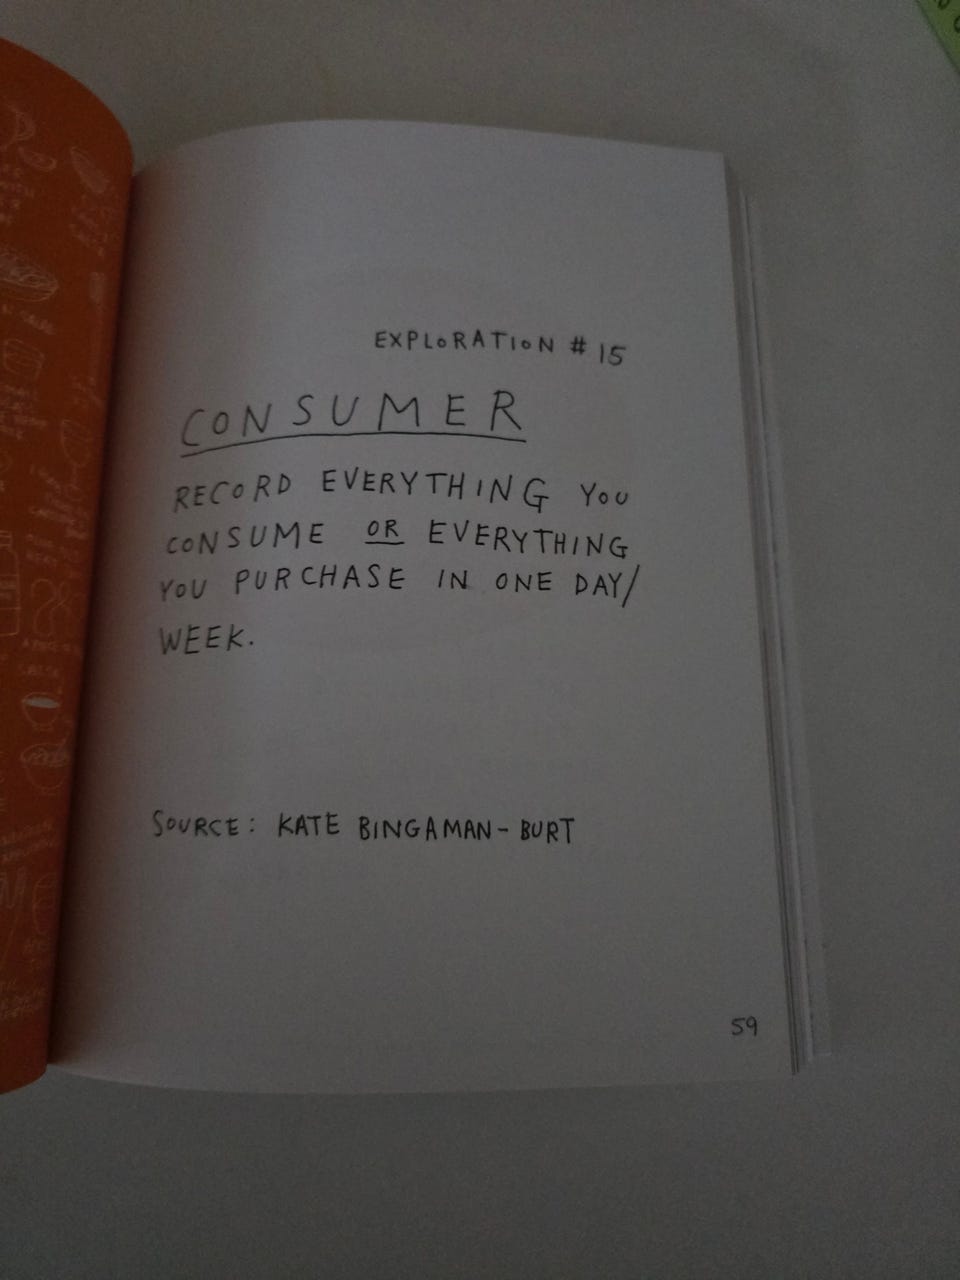 EXPLORATION # 15
CONSUMER
RECORD EVERYTHING YOU
CONSUME OR EVERYTHING
YOU PURCHASE IN ONE DAY/
WEEK.
SOURCE: KATE BINGAMAN-BURT
59